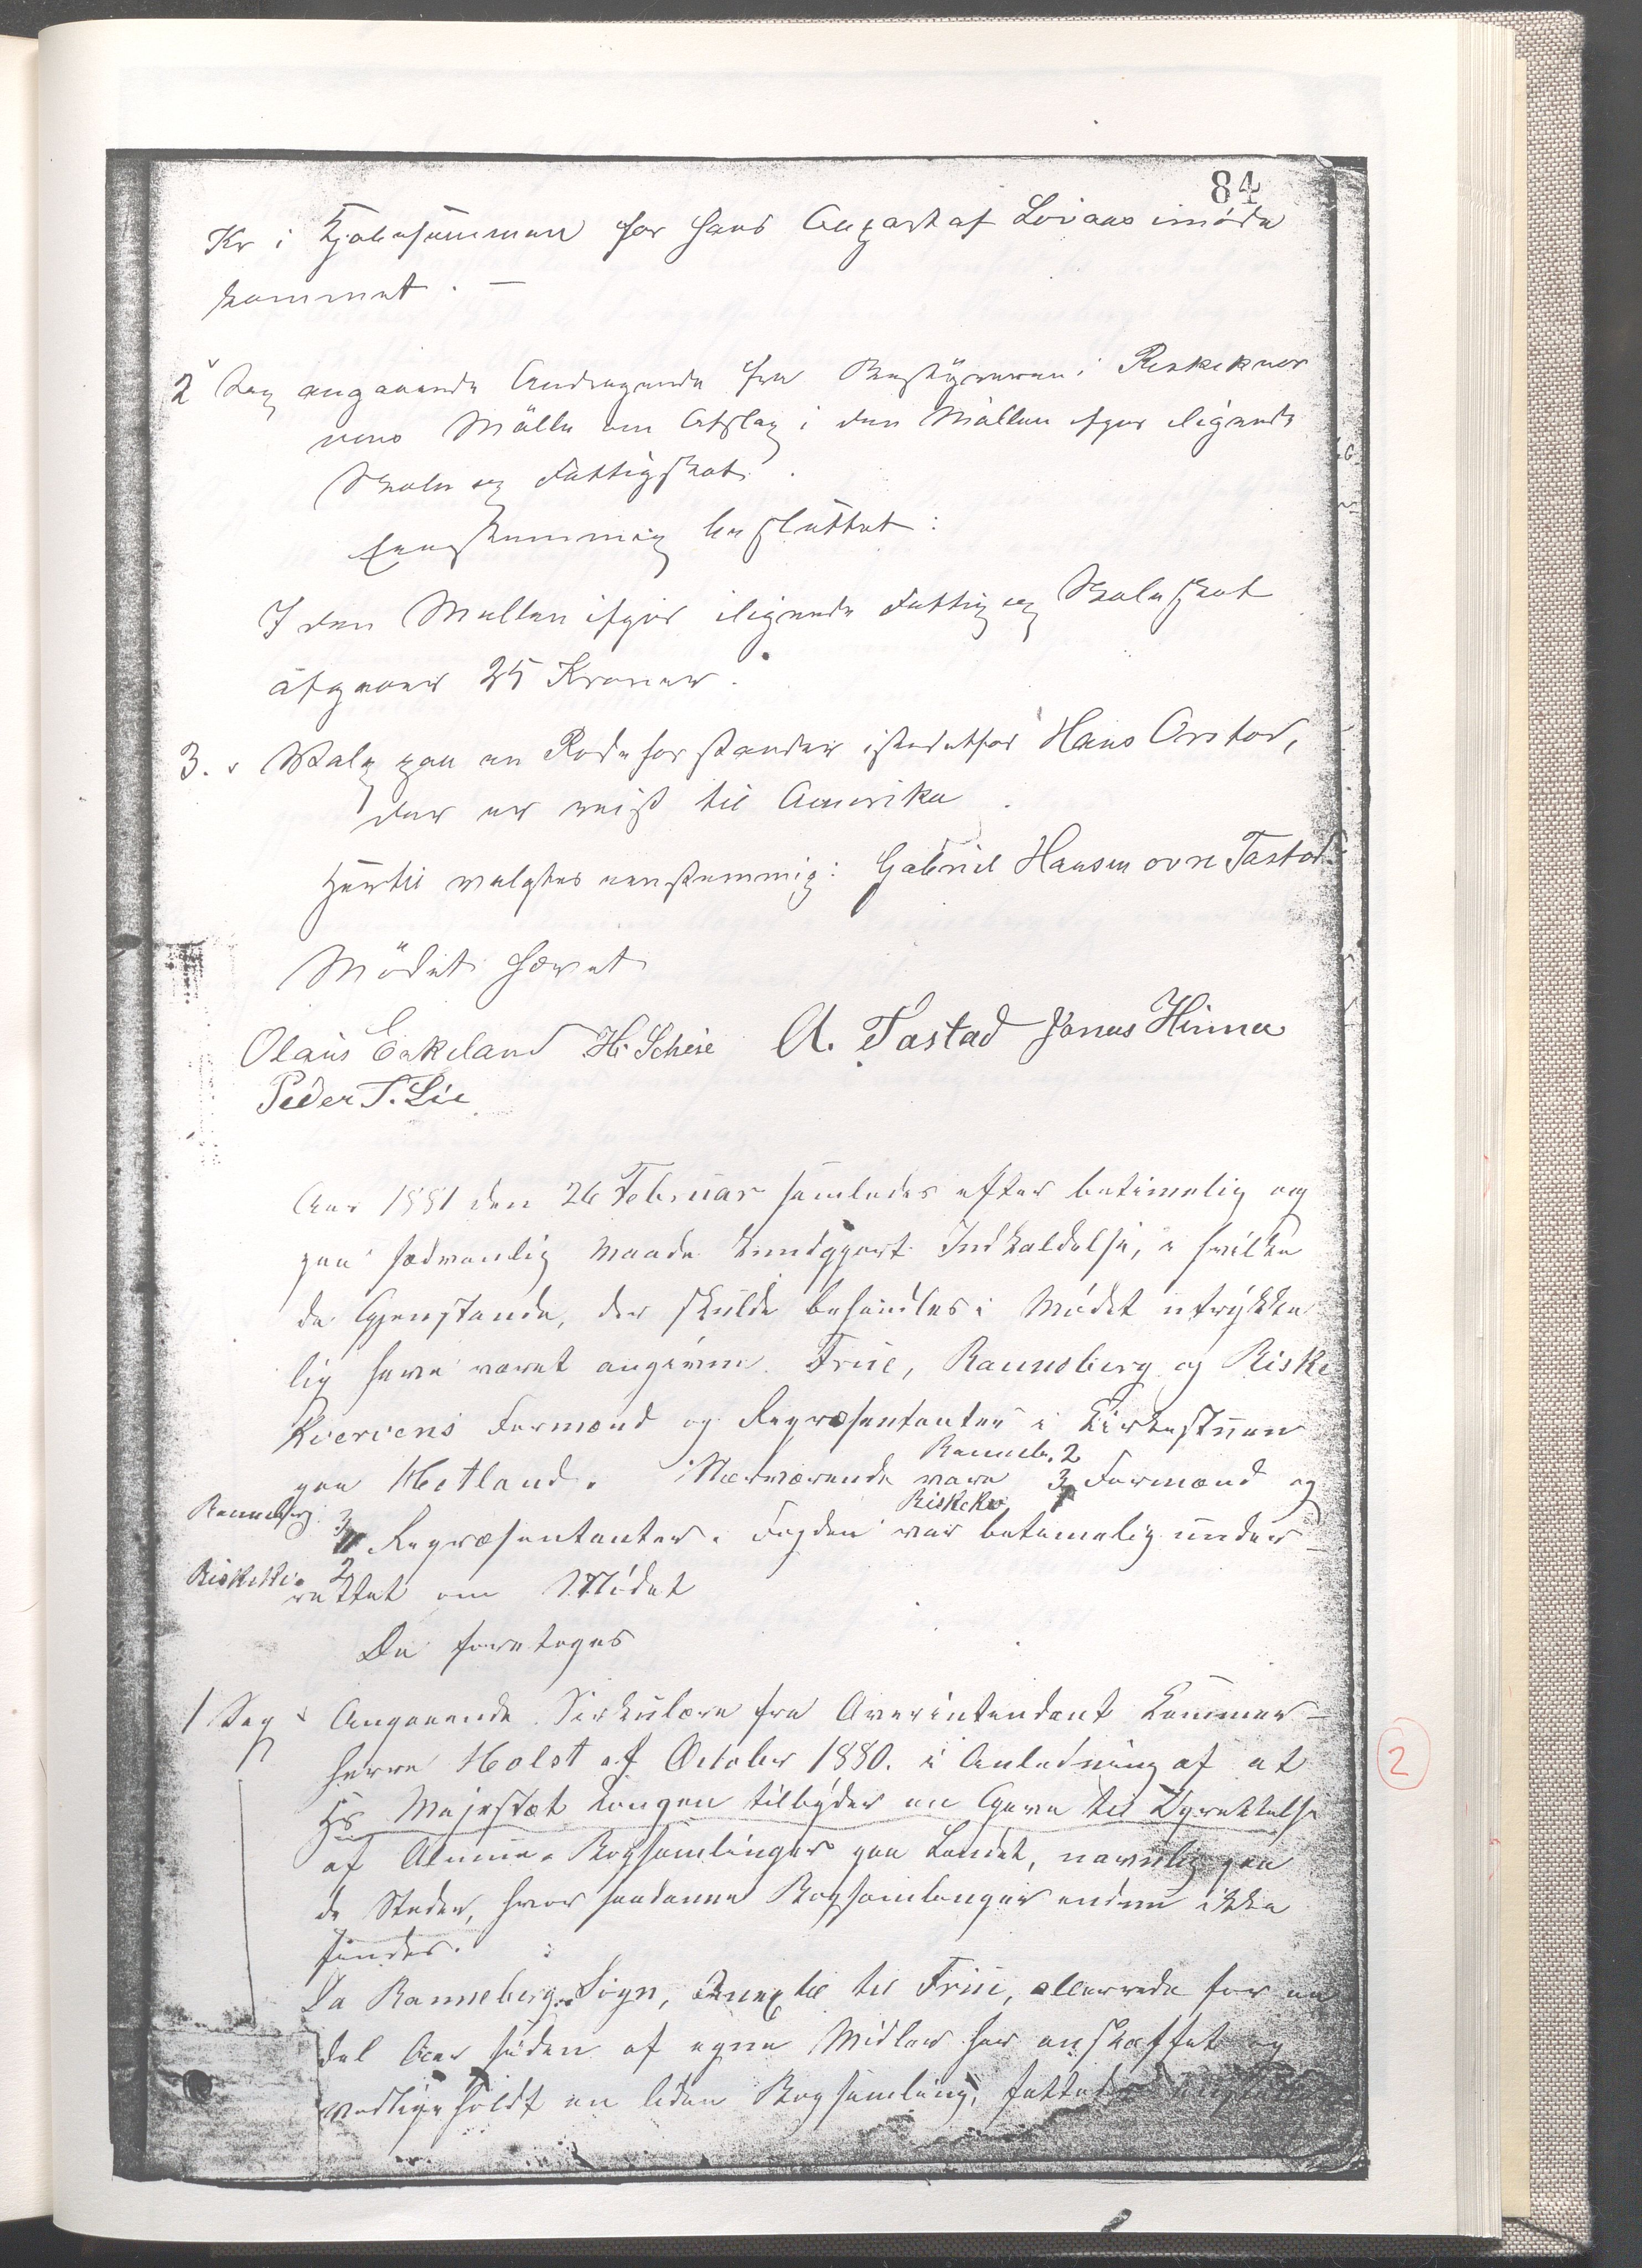 84
Kr i Kjøbesummen for hans Anpart af Loiaas imøde
kommet. —
2 Sag angaaende Andragende fra Bestyreren i Riskekver
vens Mølle om Afslag i den Møllen ifjor ilignede
Skole og Fattigskat.
Eenstemmig besluttet:
I den Møllen ifjor ilignede Fattig og Skoleskat
afgaaer 25 Kroner.
3. Valg paa en Rodeforstander istedetfor Hans Orstad,
der er reist til Amerika.
Hertil valgtes eenstemmig: Gabriel Hansen ovre Tastad.
Mödet hævet
Olaus Eskeland H. Scheie A. Tastad Jonas Hinna
Peder T. Lie
Aar 1881 den 26 Februar samledes efter betimelig og
paa sædvanlig Maade kundgjort Indkaldelse, i hvilken
de Gjenstande, der skulde behandles i Mødet utrykke
lig have været angivne Frue, Ranneberg og Riske
Kvervens Formænd og Repræsentanter i Kirkestuen
Ranneb. 2
paa Hetland. Nærværende vare 3 Formænd og
Riskekv. 1
Ranneberg: 3
Repræsentanter. Fogden var betimelig under-
Riskekv. 2
rettet om Mødet
Da foretoges
1 Sag Angaaende Sirkulære fra Overintendant Kammer-
herre Holst af October 1880. i Anledning af at
Hs Majestæt Kongen tilbyder en Gave til Oprettelse
af Almue-Bogsamlinger paa Landet, navnlig paa
de Steder, hvor saadanne Bogsamlinger endnu ikke
findes.
Da Ranneberg Sogn, Annex til Frue, allerede for en
del Aar siden af egne Midler har anskaffet og
vedligeholdt en liden Bogsamling, fattedes
2